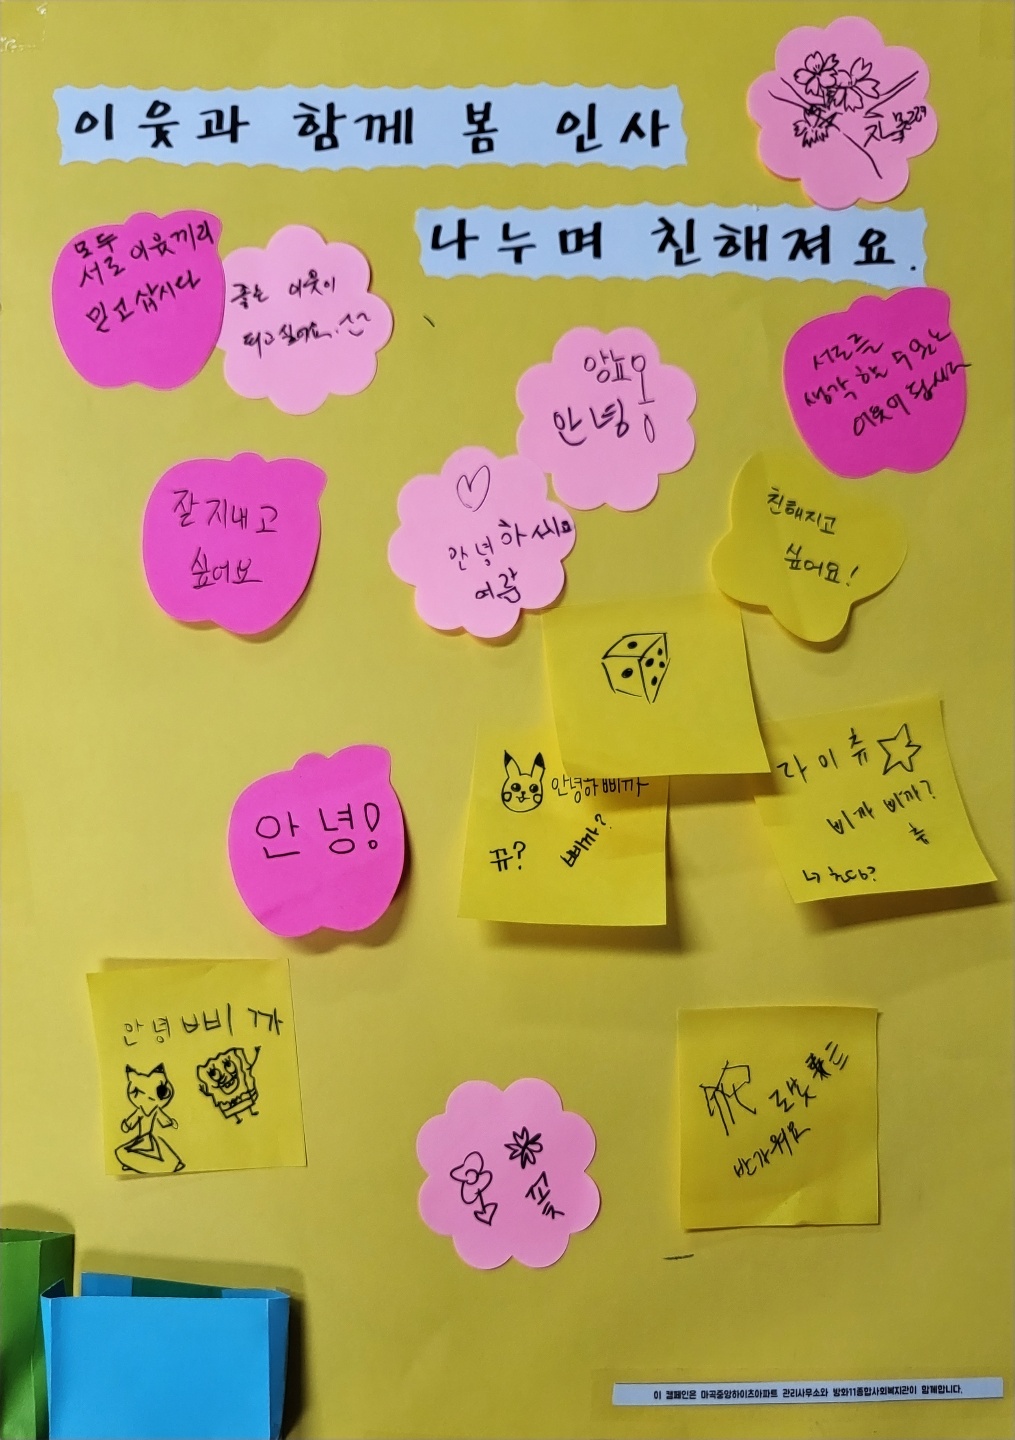 이웃과 함께 봄 인사
나누며 친해져요.
모두
서로 이웃끼리
믿고 삽시다
좋은 이웃이
되고 싶어요.
서로를
생각 하는 수 있는
이웃이 됩시다
앙뇨옹
안녕!
잘 지내고
싶어요
안녕하세요
여러분
친해지고
싶어요!
안녕하삐까
뀨?
삐까?
라이츄
삐까 삐까?
츄
안녕!
안녕 삐까
로봇
반가워요
꽃
이 캠페인은 마곡중앙하이츠아파트 관리사무소와 방화11종합사회복지관이 함께합니다.